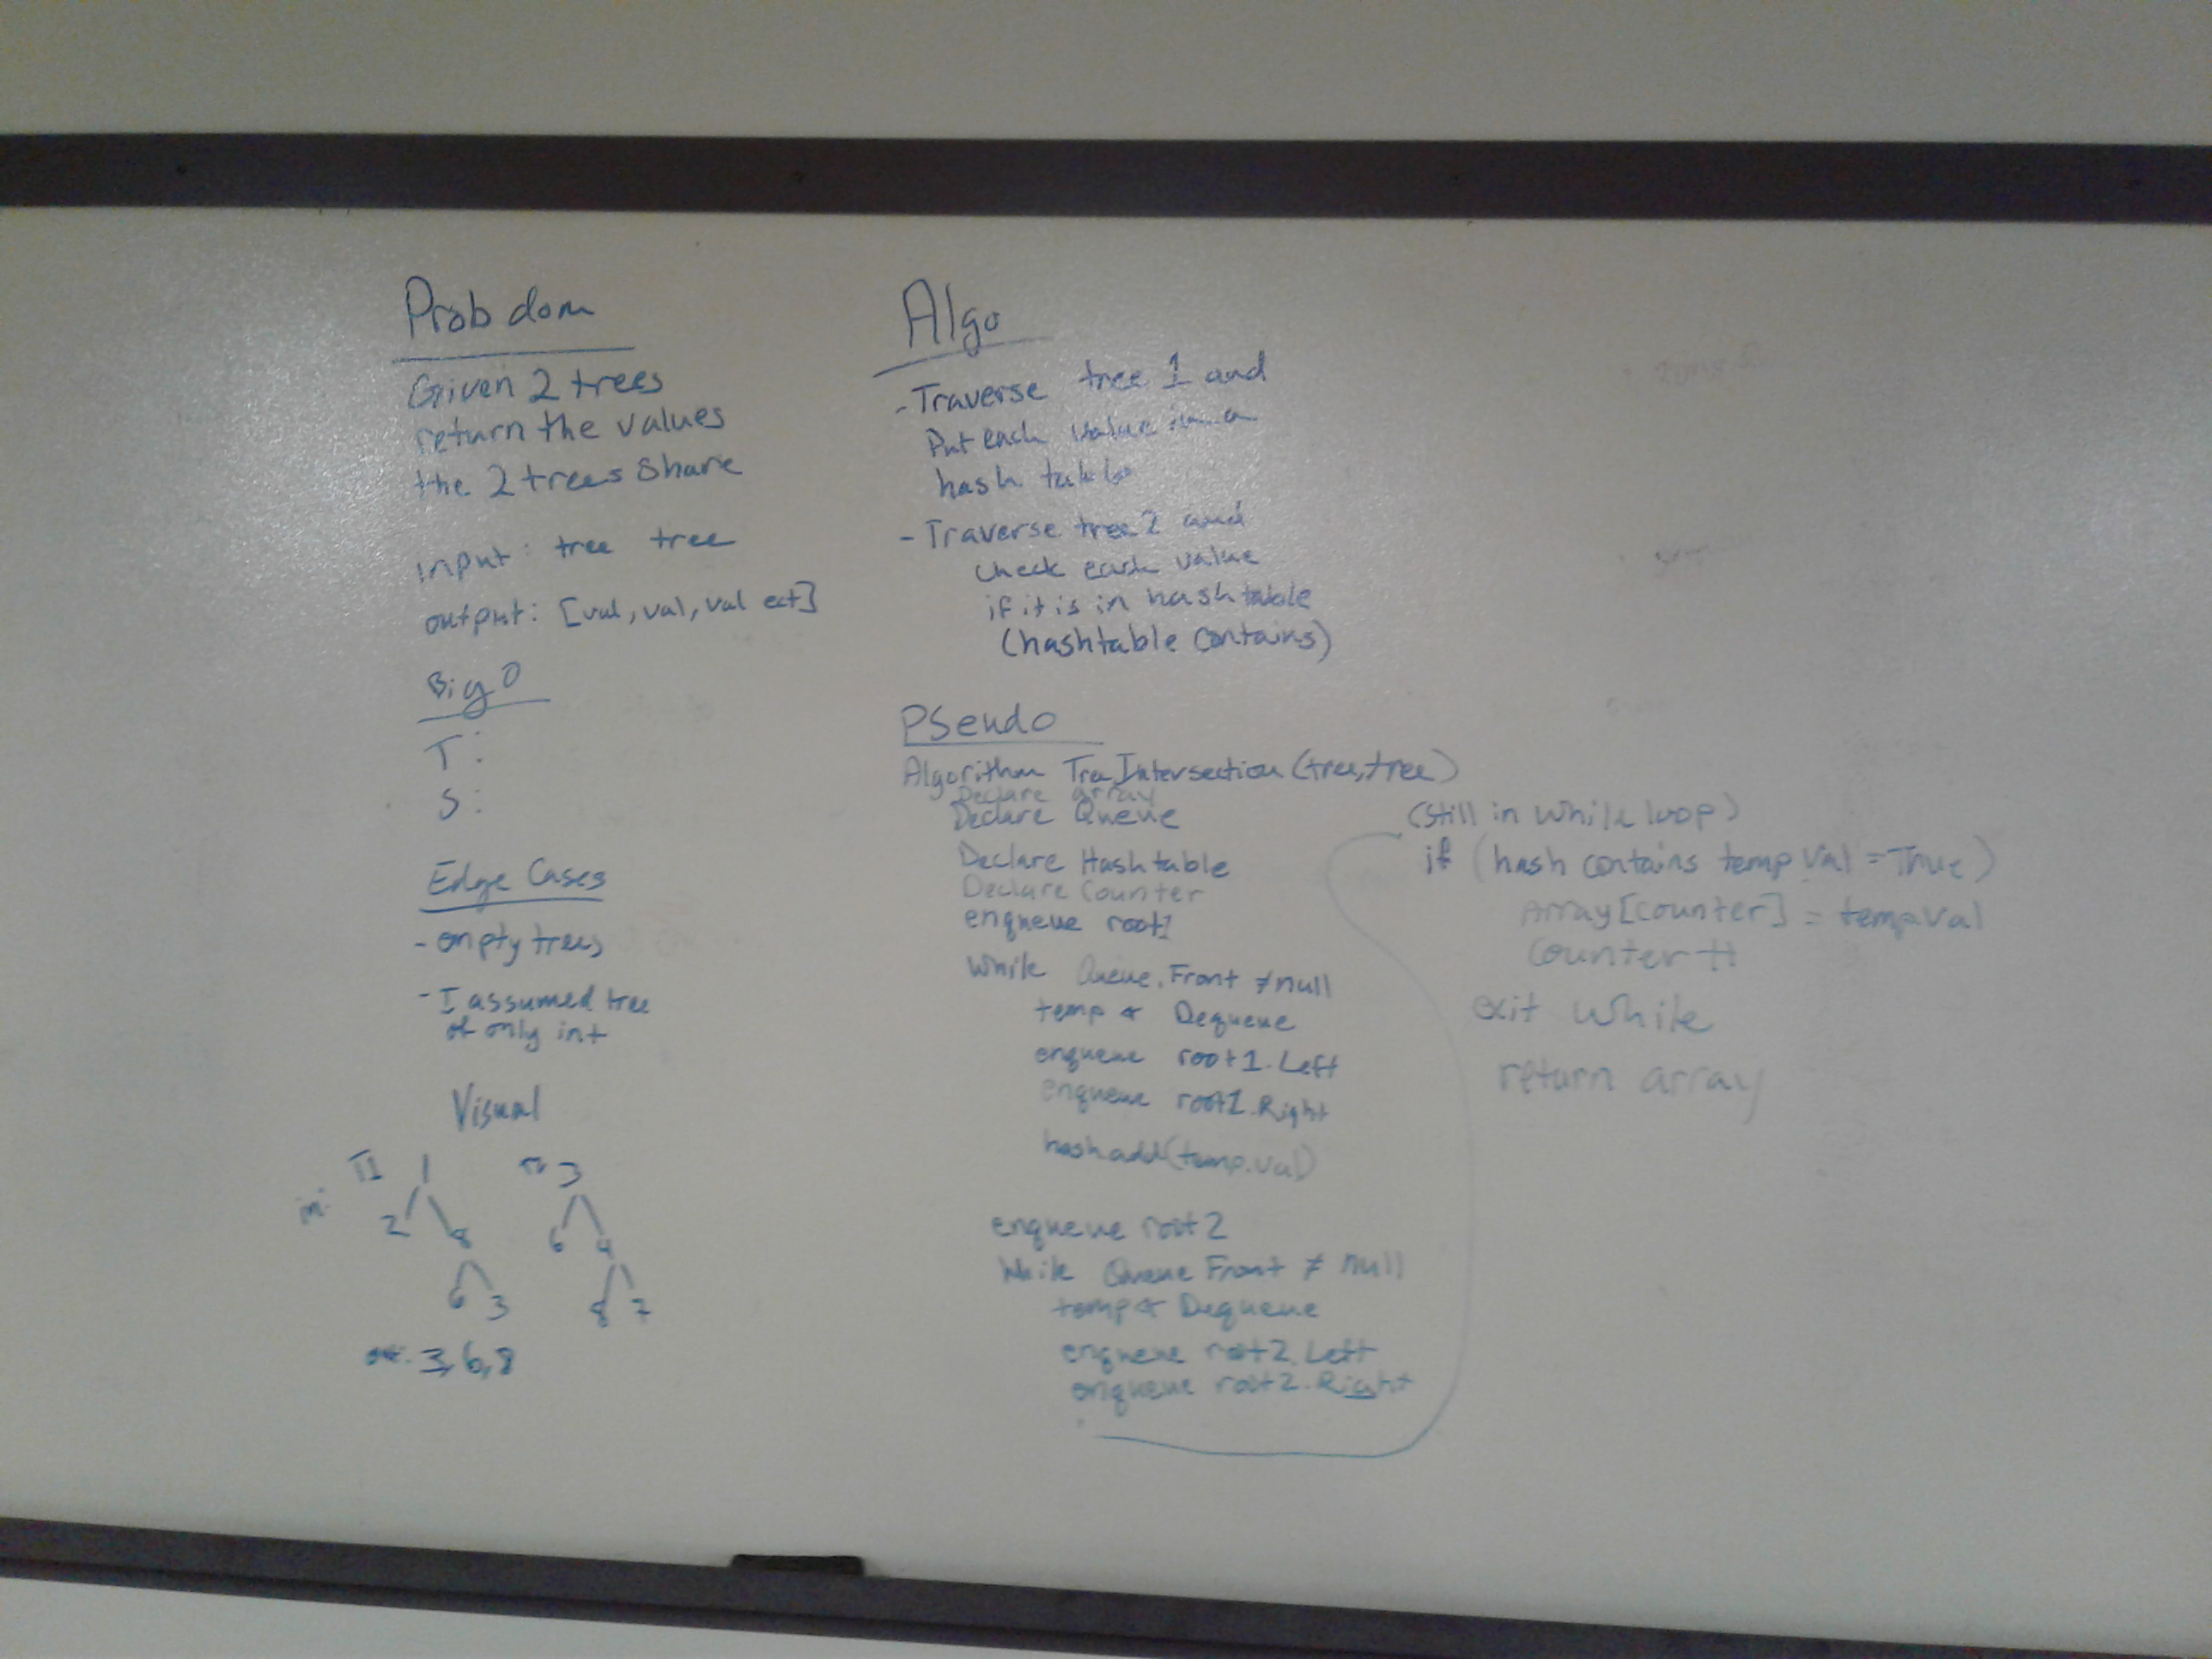 Prob dom
Given 2 trees
return the values
the 2 trees share
input: tree tree
output: [val, val, val ect]
Big O
T:
S:
Edge Cases
- empty trees
- I assumed tree
of only int
Visual
in: T1 1 T2 3
2 8 6 4
6 3 8 7
out: 3,6,8
Algo
- Traverse tree 1 and
Put each value in a
hash table
- Traverse tree 2 and
check each value
if it is in hashtable
(hashtable contains)
PSeudo
Algorithm TreeIntersection (tree, tree)
Declare array
Declare Queue
Declare Hashtable
Declare Counter
enqueue root1
While Queue.Front ≠ null
temp ← Dequeue
enqueue root1.Left
enqueue root1.Right
hash add(temp.val)
enqueue root2
While Queue Front ≠ null
temp ← Dequeue
enqueue root2.Left
enqueue root2.Right
(still in while loop)
if (hash contains temp.Val = True)
Array[counter] = temp.val
Counter ++
exit while
return array